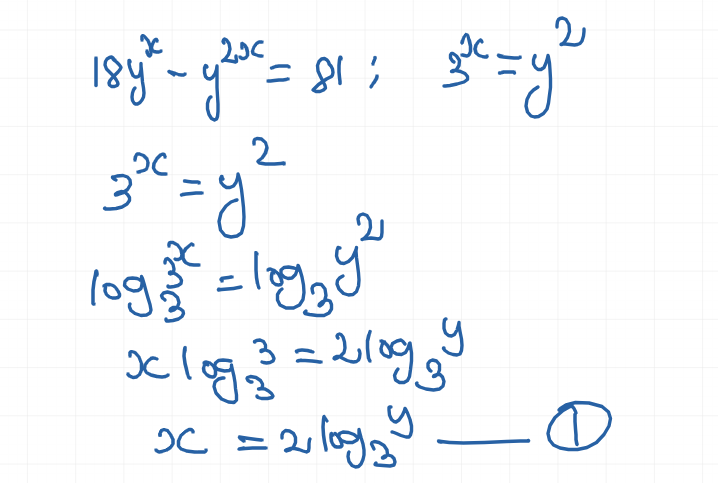 18y^x - y^{2x} = 81 ; 3^x = y^2
3^x = y^2
log_3 3^x = log_3 y^2
x log_3 3 = 2 log_3 y
x = 2 log_3 y —— ①